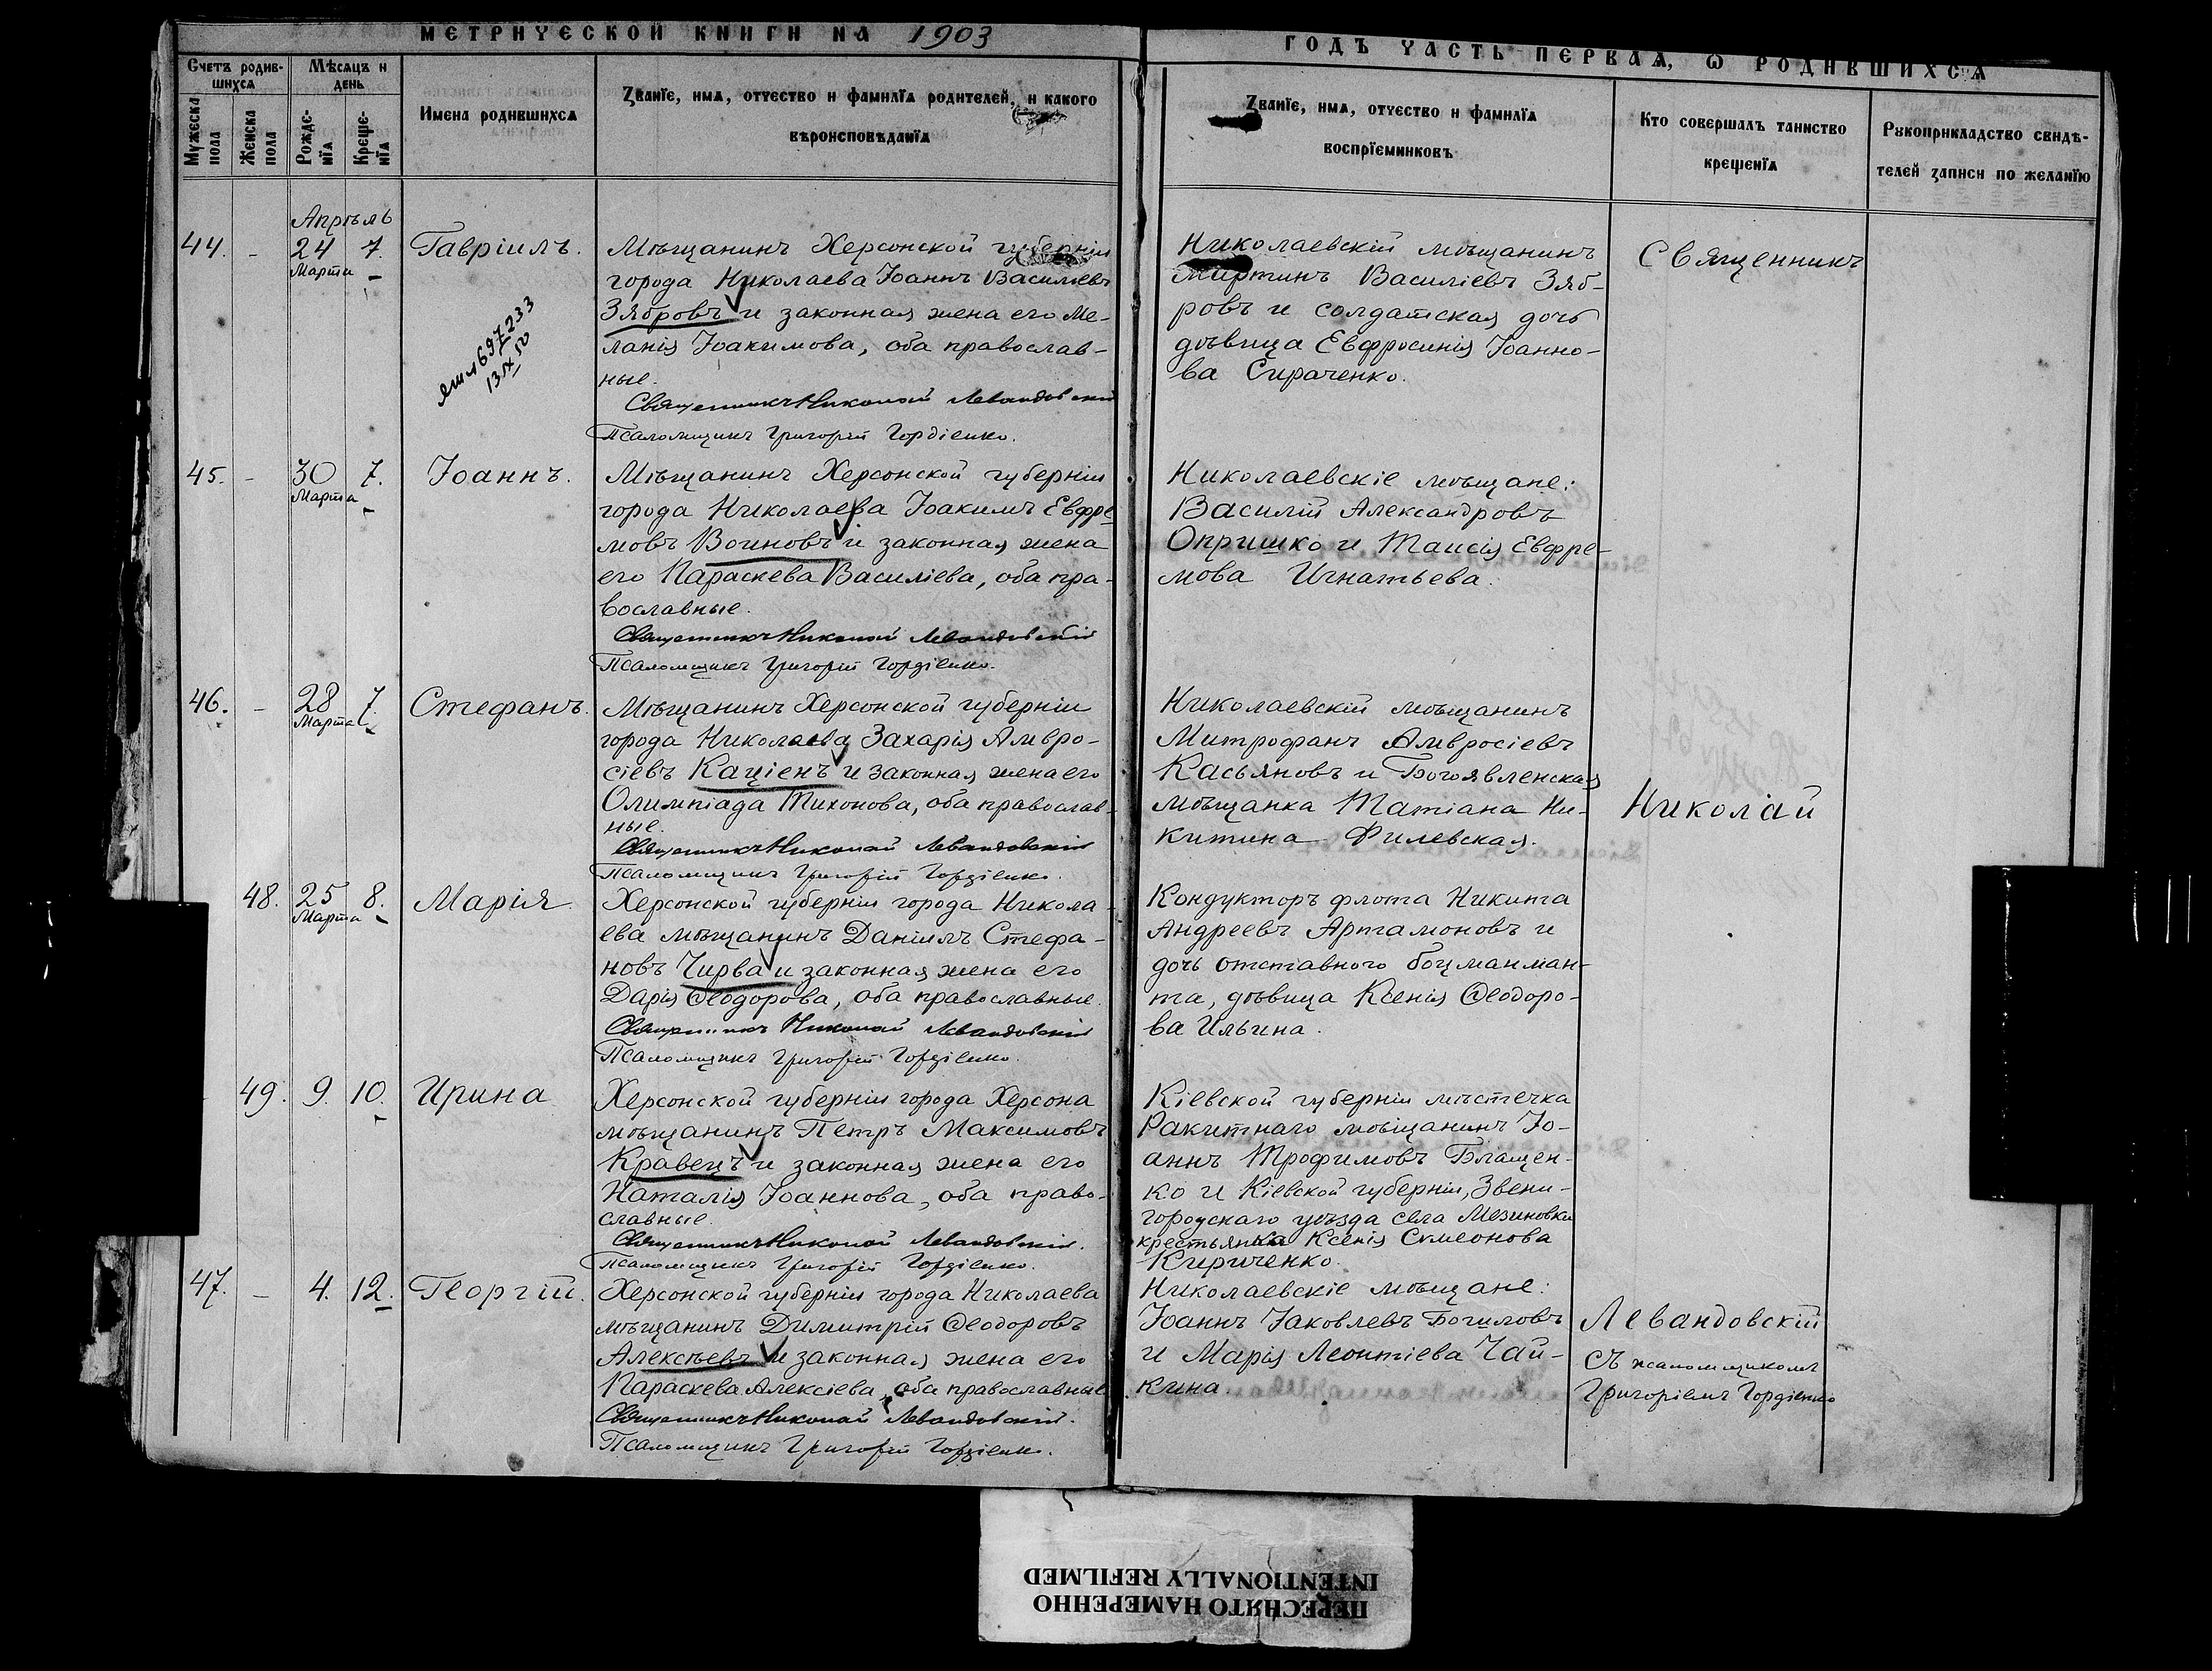 МЕТРИЧЕСКОЙ КНИГИ НА 1903
ГОДЪ ЧАСТЬ ПЕРВАѦ, Ѡ РОДИВШИХСѦ
Счетъ родив-
шихсѧ
Мѣсѧцъ и
день
Мужеска
пола
Женска
пола
Рожде-
нїѧ
Креще-
нїѧ
Имена родившихсѧ
Званїе, имѧ, отчество и фамилїѧ родителей, и какого
вѣроисповѣданїѧ
Званїе, имѧ, отчество и фамилїѧ
воспрїемниковъ
Кто совершалъ таинство
крещенїѧ
Рукоприкладство свидѣ-
телей записи по желанїю
Апрѣль
44. - 24 7. Гавріилъ.
Марта
697233
13 IX 50
Мѣщанинъ Херсонской губерніи
города Николаева Іоаннъ Василіевъ
Зябровъ и законная жена его Ме-
ланія Іоакимова, оба православ-
ные.
Священникъ Николай Левандовскій
Псаломщикъ Григорій Гордіенко.
Николаевскій мѣщанинъ
Мартинъ Василіевъ Зяб-
ровъ и солдатская дочь
дѣвица Евфросинія Іоанно-
ва Сираченко.
Священникъ
45. - 30 7. Іоаннъ.
Марта
Мѣщанинъ Херсонской губерніи
города Николаева Іоакимъ Евфре-
мовъ Воиновъ и законная жена
его Параскева Василіева, оба пра-
вославные.
Священникъ Николай Левандовскій
Псаломщикъ Григорій Гордіенко.
Николаевскіе мѣщане:
Василій Александровъ
Опришко и Таисія Евфре-
мова Игнатьева.
46. - 28 7. Стефанъ.
Марта
Мѣщанинъ Херсонской губерніи
города Николаева Захарія Амвро-
сіевъ Каціенъ и законная жена его
Олимпіада Тихонова, оба православ-
ные.
Священникъ Николай Левандовскій
Псаломщикъ Григорій Гордіенко.
Николаевскій мѣщанинъ
Митрофанъ Амвросіевъ
Касьяновъ и Богоявленская
мѣщанка Татіана Ни-
китина Филевская.
Николай
48. 25 8. Марія.
Марта
Херсонской губерніи города Никола-
ева мѣщанинъ Даніилъ Стефа-
новъ Чирва и законная жена его
Дарія Ѳеодорова, оба православные.
Священникъ Николай Левандовскій
Псаломщикъ Григорій Гордіенко.
Кондукторъ флота Никита
Андреевъ Артамоновъ и
дочь отставного боцманман-
та, дѣвица Ксенія Ѳеодоро-
ва Ильина.
49. 9. 10. Ирина
Херсонской губерніи города Херсона
мѣщанинъ Петръ Максимовъ
Кравецъ и законная жена его
Наталія Іоаннова, оба право-
славные.
Священникъ Николай Левандовскій.
Псаломщикъ Григорій Гордіенко.
Кіевской губерніи мѣстечка
Ракитнаго мѣщанинъ Іо-
аннъ Трофимовъ Блащен-
ко и Кіевской губерніи, Звени-
городскаго уѣзда села Мезиновки
крестьянка Ксенія Симеонова
Кириченко.
47. - 4. 12. Георгій.
Херсонской губерніи города Николаева
мѣщанинъ Димитрій Ѳеодоровъ
Алексѣевъ и законная жена его
Параскева Алексіева, оба православные
Священникъ Николай Левандовскій.
Псаломщикъ Григорій Гордіенко.
Николаевскіе мѣщане:
Іоаннъ Іаковлевъ Богиловъ
и Марія Леонтіева Чай-
кина.
Левандовскій
съ псаломщикомъ
Григоріемъ Гордіенко
ПЕРЕСНЯТО НАМЕРЕННО
INTENTIONALLY REFILMED